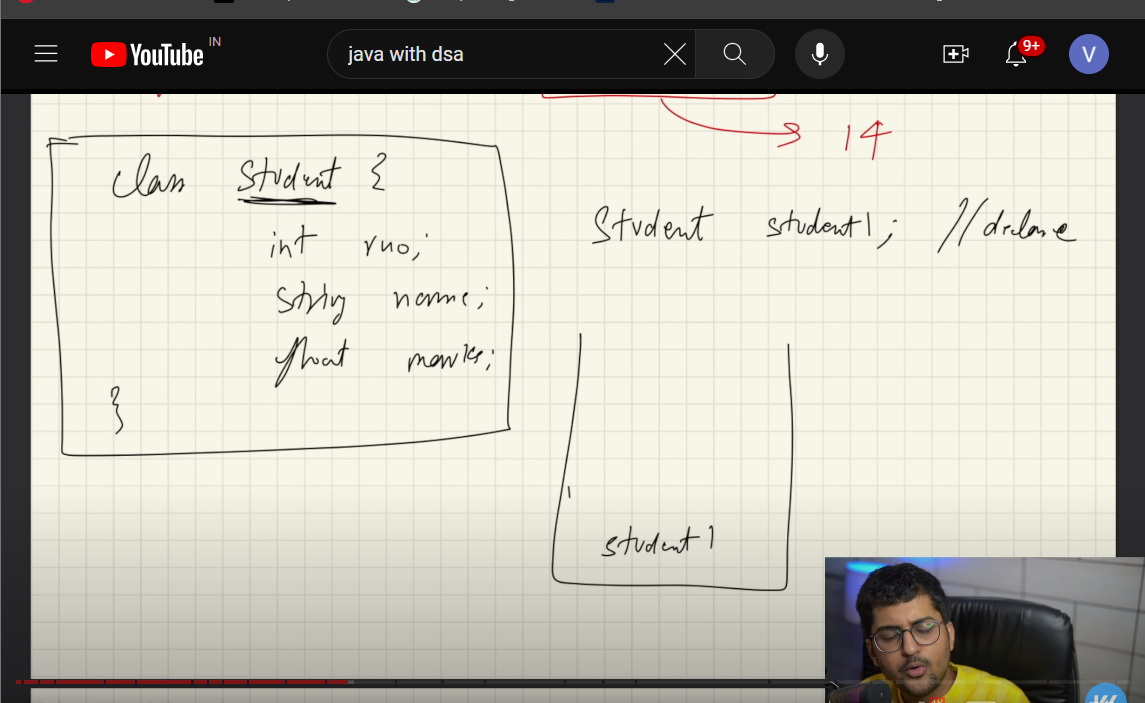 YouTube IN
java with dsa
9+
V
14
class Student {
int rno;
string name;
float marks;
}
Student student1; //declare
student1